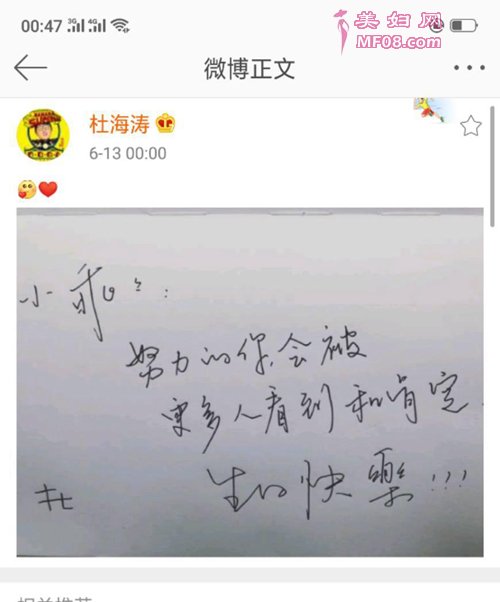 00:47
美妇网
MF08.com
微博正文
杜海涛
6-13 00:00
小乖々:
努力的你会被
更多人看到和肯定
生日快樂!!!
杜